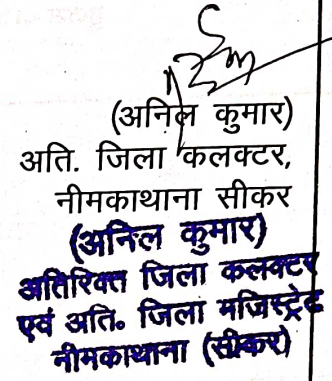 (अनिल कुमार)
अति. जिला कलक्टर,
नीमकाथाना सीकर
(अनिल कुमार)
अतिरिक्त जिला कलक्टर
एवं अति. जिला मजिस्ट्रेट
नीमकाथाना (सीकर)